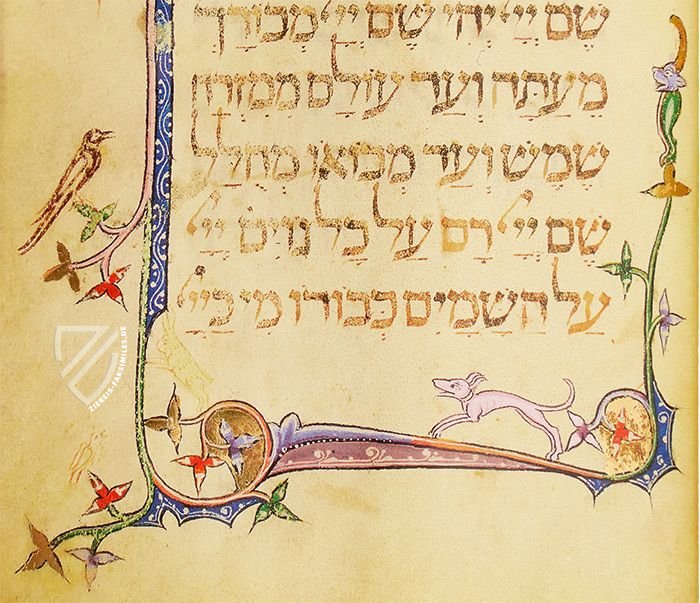 שֵׁם יְיָ יְהִי שֵׁם יְיָ מְבוֹרָךְ
מֵעַתָּה וְעַד עוֹלָם מִמִּזְרַח
שֶׁמֶשׁ וְעַד מְבוֹאוֹ מְהֻלָּל
שֵׁם יְיָ רָם עַל כָּל גּוֹיִם יְיָ
עַל הַשָּׁמַיִם כְּבוֹדוֹ מִי כַּיְיָ
ZIEREIS-FAKSIMILES.DE